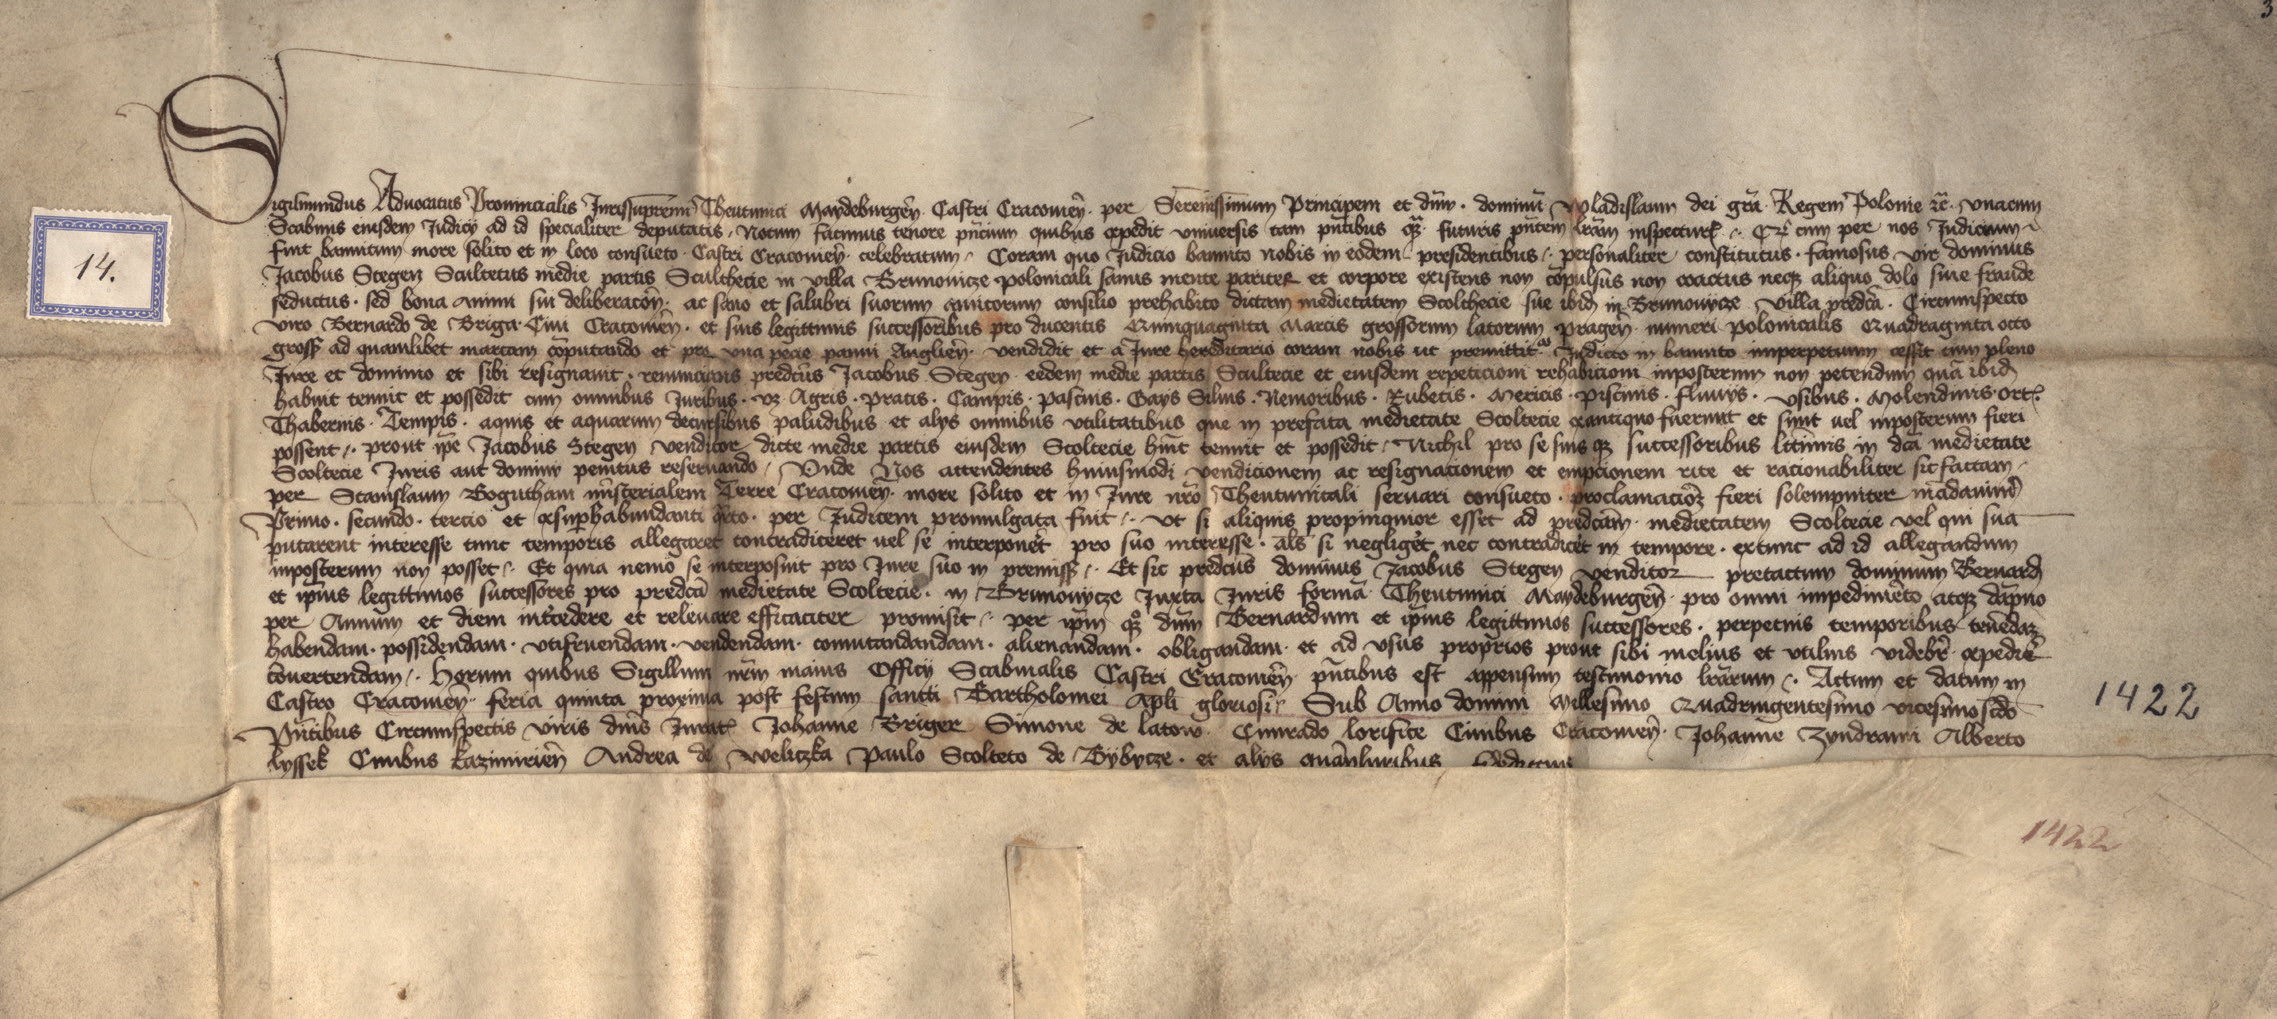 3
Sigismundus Advocatus Provincialis Jurissupremi Theutunici Maydeburgeñ Castri Cracovieñ per Serenissimum Principem et dñm · dominũ Wladislaum dei grã Regem Polonie &c̃ · vnacum
Scabinis eiusdem Judicij ad id specialiter deputatis · Notum facimus tenore pñcium quibus expedit vniuersis tam pñtibus q̃ futuris pñtem lrãm inspectur · cum per nos Judicium
fuit bannitum more solito et in loco consueto Castri Cracovieñ celebratum · Coram quo Judicio bannito nobis in eodem presidentibus · personaliter constitutus · famosus vir dominus
Jacobus Stegen Scultetus medie partis Sculthecie in villa Brunonicze polonicali sanus mente pariter et corpore existens non cõpulsus non coactus neqz aliquo dolo siue fraude
seductus · sed bona animi sui deliberacoñ · ac sano et salubri suorum amicorum consilio prehabito dictam medietatem Scolthecie sue ibid̃ in Brunowycze villa predcã · Circumspecto
viro Bernardo de Briga Ciui Cracovieñ · et suis legittimis successoribus pro ducentis Quinquaginta Marcis grossorum latorum pragen̄ numeri polonicalis Quadraginta octo
gross ad quamlibet marcam cõputando et pro vna pecie panni Anglieñ · vendidit et a Jure hereditario coram nobis ut premittit Judicio in bannito imperpetuum cessit cum pleno
Jure et dominio et sibi resignauit · renuncians predcũs Jacobus Stegen eedem medie partis Scultecie et eiusdem repeticioni rehabicioni inposterum non petendum quã ibid̃
habuit tenuit et possedit cum omnibus Juribus · vz Agris · Pratis · Campis · pascuis · Gays Siluis · Nemoribus · Rubetis · Mericis · piscinis · fluuijs · vsibus · Molendinis · ort
Thabernis · aquis et aquarum decursibus paludibus et alijs omnibus vtilitatibus que in prefata medietate Scoltecie exantiquo fuerunt et sunt uel inposterum fieri
possent · prout ip̃e Jacobus Stegen venditor dicte medie partis eiusdem Scoltecie hũit tenuit et possedit · Nichil pro se suis qz successoribus ltĩmis in dcã medietate
Scoltecie Juris aut dominij penitus reseruando · Vnde Nos attendentes huiusmodi vendicionem ac resignacionem et empcionem rite et racionabiliter sic factam ·
per Stanislaum Bogutham mĩsterialem Terre Cracovieñ · more solito et in Jure nrõ Theutunicali seruari consueto · proclamacioz fieri solempniter mãdauim̃
Primo · secundo · tercio et exsup̃habundanti q̃rto · per Judicem promulgata fuit · Vt si aliquis propinquior esset ad predcãm medietatem Scoltecie vel qui sua
putarent interesse tunc temporis allegaret contradiceret uel se interponẽt pro suo interesse · als̃ si negligẽt nec contradicẽt in tempore · extunc ad id allegandum
inposterum non posset · Et quia nemo se interposuit pro Jure suo in premiss · Et sic predcũs dominus Jacobus Stegen venditor pretactum dominum Bernard̃
et ip̃ius legittimos successores pro predcã medietate Scoltecie · in Brunowycze Juxta Juris formã Theutunici Maydeburgeñ · pro omni impedimẽto atqz dãpno
per Annum et diem int̃cedere et releuare efficaciter promisit · per ip̃m qz dñm Bernardum et ip̃ius legittimos successores · perpetuis temporibus tenẽdaz
habendam · possidendam · vtifruendam · vendendam · comutandandam · alienandam · obligandam et ad vsus proprios prout sibi melius et vtilius videbr̃ expedir̃
cõuertendam · Horum quibus Sigillum nrm̃ maius Officij Scabinalis Castri Cracovieñ pñtibus est appensum testimonio lrãrum · Actum et datum in
Castro Cracovieñ feria quinta proxima post festum sancti Bartholomei apl̃i gloriosi · Sub Anno domini Millesimo Quadringentesimo vicesimo scd̃o
Pñtibus Circumspectis viris dñis Jurat Johanne Briger Simone de latow Cunrado lorifice Ciuibus Cracovieñ · Johanne Zyndrami Alberto
lyssek Ciuibus kazimirieñ Andrea de Weliczka Paulo Scolteto de Bybycze · et alijs
14.
1422
1422